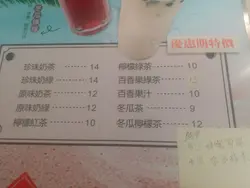 優惠期特價
珍珠奶茶 —— 14
珍珠奶綠 —— 14
原味奶茶 —— 12
原味奶綠 —— 12
檸檬紅茶 —— 10
檸檬綠茶 —— 10
百香果綠茶 ——
百香果汁 —— 10
冬瓜茶 —— 9
冬瓜檸檬茶 —— 12